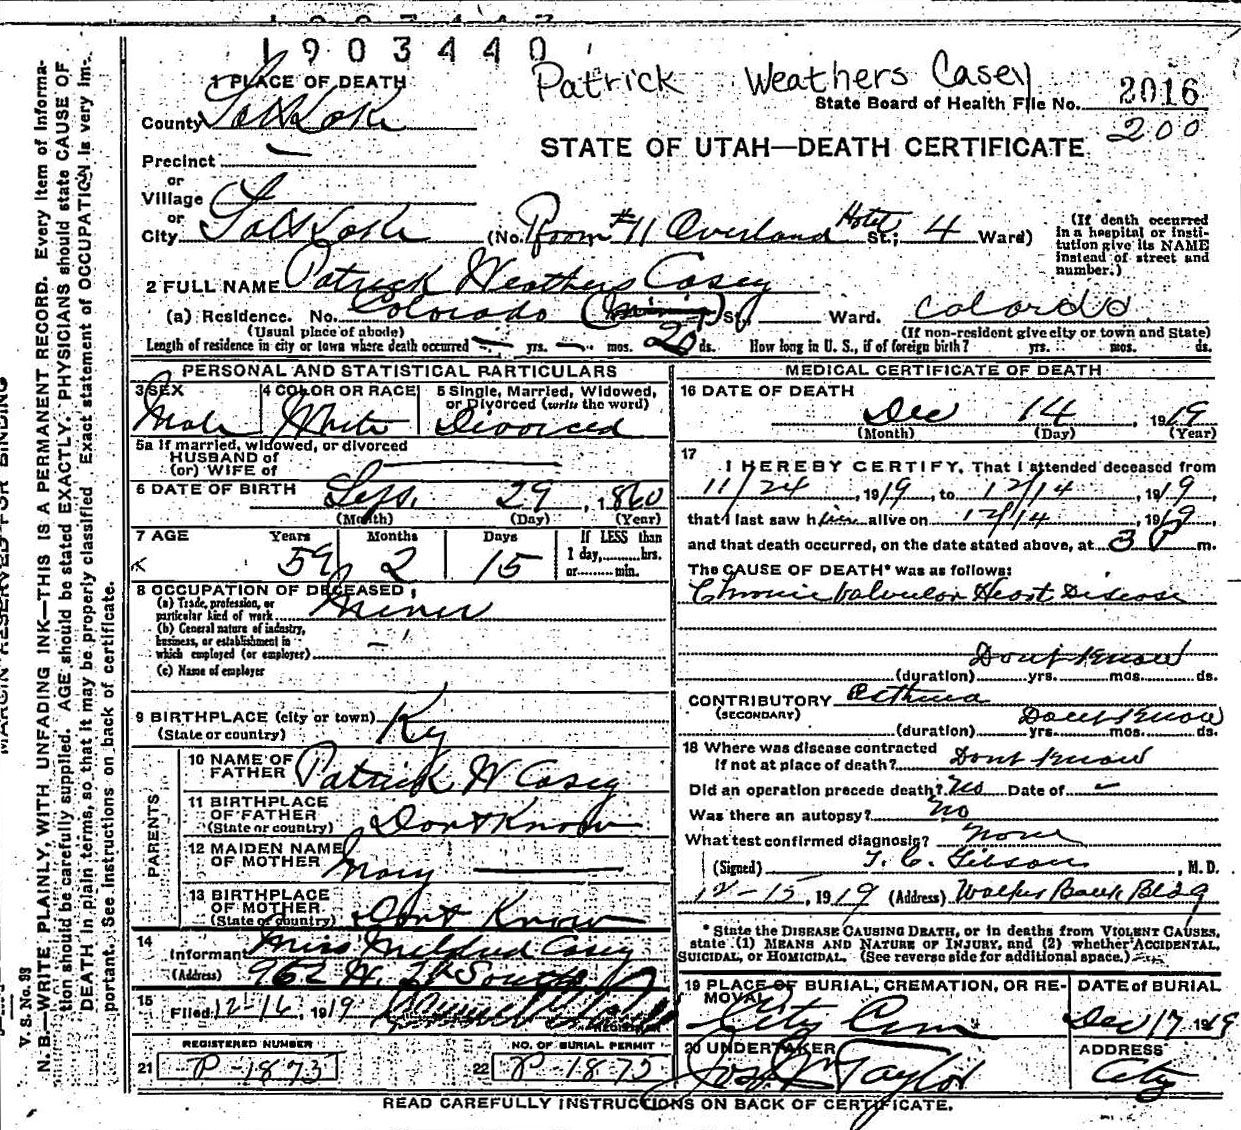 1903440
Patrick Weathers Casey
1 PLACE OF DEATH
State Board of Health File No. 2016
County Salt Lake
200
STATE OF UTAH—DEATH CERTIFICATE
Precinct —
or
Village
or
City Salt Lake (No. Room #11 Overland Hotel St.; 4 Ward)
(If death occurred in a hospital or institution give its NAME instead of street and number.)
2 FULL NAME Patrick Weathers Casey
(a) Residence. No. Colorado St., Ward. Colorado
(Usual place of abode) (If non-resident give city or town and State)
Length of residence in city or town where death occurred — yrs. — mos. 20 ds. How long in U. S., if of foreign birth? yrs. mos. ds.
PERSONAL AND STATISTICAL PARTICULARS
3 SEX Male
4 COLOR OR RACE White
5 Single, Married, Widowed, or Divorced (write the word) Divorced
5a If married, widowed, or divorced
HUSBAND of
(or) WIFE of —
6 DATE OF BIRTH Sept. 29, 1860
(Month) (Day) (Year)
7 AGE Years 59 Months 2 Days 15 If LESS than 1 day,........hrs. or.........min.
8 OCCUPATION OF DECEASED
(a) Trade, profession, or particular kind of work Miner
(b) General nature of industry, business, or establishment in which employed (or employer) —
(c) Name of employer
9 BIRTHPLACE (city or town) Ky
(State or country)
PARENTS
10 NAME OF FATHER Patrick W Casey
11 BIRTHPLACE OF FATHER (State or country) Dont Know
12 MAIDEN NAME OF MOTHER Mary —
13 BIRTHPLACE OF MOTHER (State or country) Dont Know
14 Informant Miss Mildred Casey
(Address) 962 W. 2d South
15 Filed 12-16, 1919
REGISTRAR
REGISTERED NUMBER
21 P-1873
NO. OF BURIAL PERMIT
22 P-1873
MEDICAL CERTIFICATE OF DEATH
16 DATE OF DEATH
Dec 14, 1919
(Month) (Day) (Year)
17
I HEREBY CERTIFY, That I attended deceased from
11/24, 1919, to 12/14, 1919,
that I last saw him alive on 12/14, 1919
and that death occurred, on the date stated above, at 3 P m.
The CAUSE OF DEATH* was as follows:
Chronic Valvular Heart Disease
Dont Know
(duration) yrs. mos. ds.
CONTRIBUTORY Asthma
(SECONDARY) Dont Know
(duration) yrs. mos. ds.
18 Where was disease contracted
If not at place of death? Dont Know
Did an operation precede death? Yes Date of –
Was there an autopsy? No
What test confirmed diagnosis? None
(Signed) T. C. Gibson, M. D.
12-15, 1919 (Address) Walker Bank Bldg
* State the DISEASE CAUSING DEATH, or in deaths from VIOLENT CAUSES, state (1) MEANS AND NATURE OF INJURY, and (2) whether ACCIDENTAL, SUICIDAL, or HOMICIDAL. (See reverse side for additional space.)
19 PLACE OF BURIAL, CREMATION, OR REMOVAL City Cem
DATE of BURIAL Dec 17 1919
20 UNDERTAKER Jos. Wm Taylor
ADDRESS City
READ CAREFULLY INSTRUCTIONS ON BACK OF CERTIFICATE.
MARGIN RESERVED FOR BINDING
V. S. No. 98
N. B.—WRITE PLAINLY, WITH UNFADING INK—THIS IS A PERMANENT RECORD. Every item of information should be carefully supplied. AGE should be stated EXACTLY. PHYSICIANS should state CAUSE OF DEATH in plain terms, so that it may be properly classified. Exact statement of OCCUPATION is very important. See instructions on back of certificate.